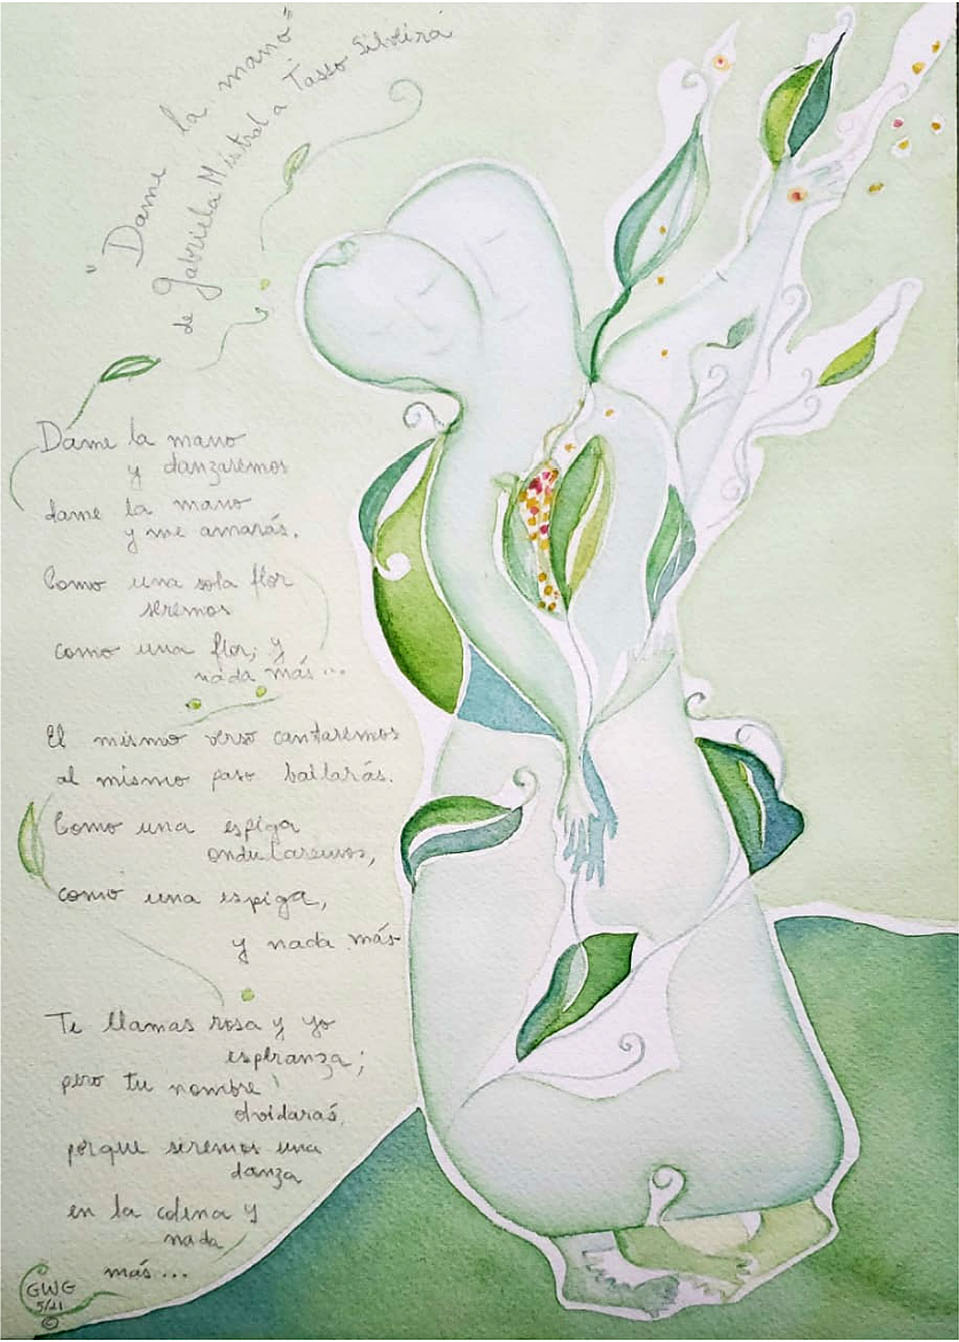 "Dame la mano"
de Gabriela Mistral a Tasso Silveira
Dame la mano
y danzaremos
dame la mano
y me amarás.
Como una sola flor
seremos
como una flor, y
nada más...
El mismo verso cantaremos
al mismo paso bailarás.
Como una espiga
ondularemos,
como una espiga,
y nada más.
Te llamas rosa y yo
esperanza;
pero tu nombre
olvidarás,
porque seremos una
danza
en la colina y
nada
más...
GWG
5/21
©